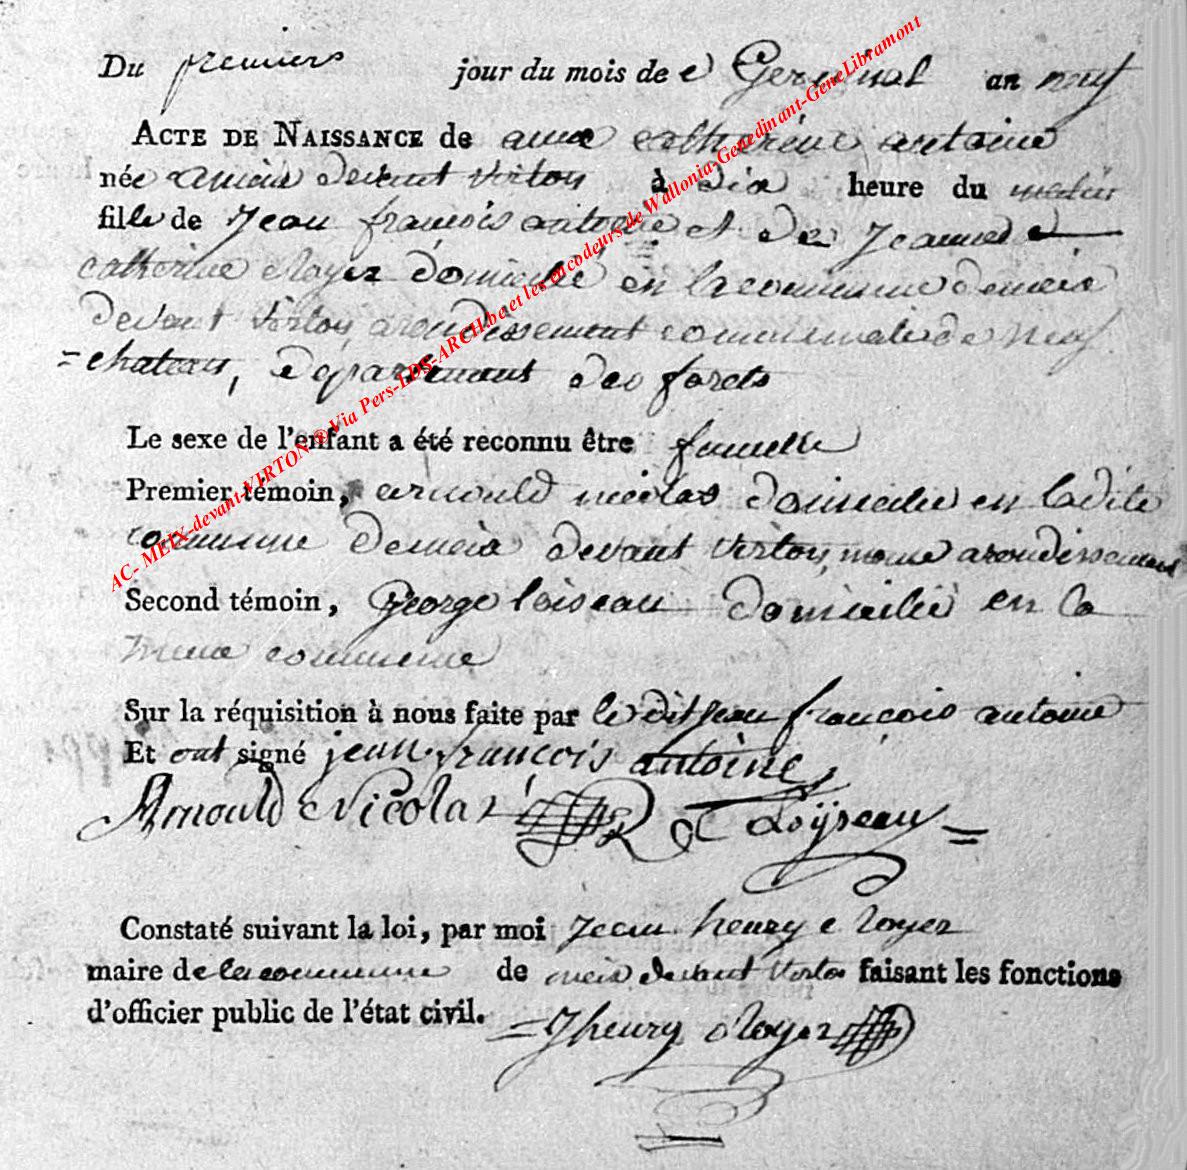 Du premiers jour du mois de Germinal an neuf
ACTE DE NAISSANCE de anne catherine antoine
née a meix devant virton à dix heure du matin
fille de Jean françois antoine et de Jeanne
catherine noyer domicilié en la commune de meix
devant virton arondissement communale de neuf
=chateau, département des forets
Le sexe de l'enfant a été reconnu être femelle
Premier témoin, arnould nicolas domicilie en ladite
commune de meix devant virton, meme arondissement
Second témoin, George loiseau domicilié en la
meme commune
Sur la réquisition à nous faite par le dit jean françois antoine
Et ont signé jean françois antoine
Arnould Nicolas Loÿseau =
Constaté suivant la loi, par moi Jean henry noyer
maire de la commune de meix devant virton faisant les fonctions
d'officier public de l'état civil. =Jhenry noyer
AC- MEIX-devant-VIRTON ® Via Pers-LDS-ARCH.be et les encodeurs de Wallonia-Genedinant-GeneLibramont